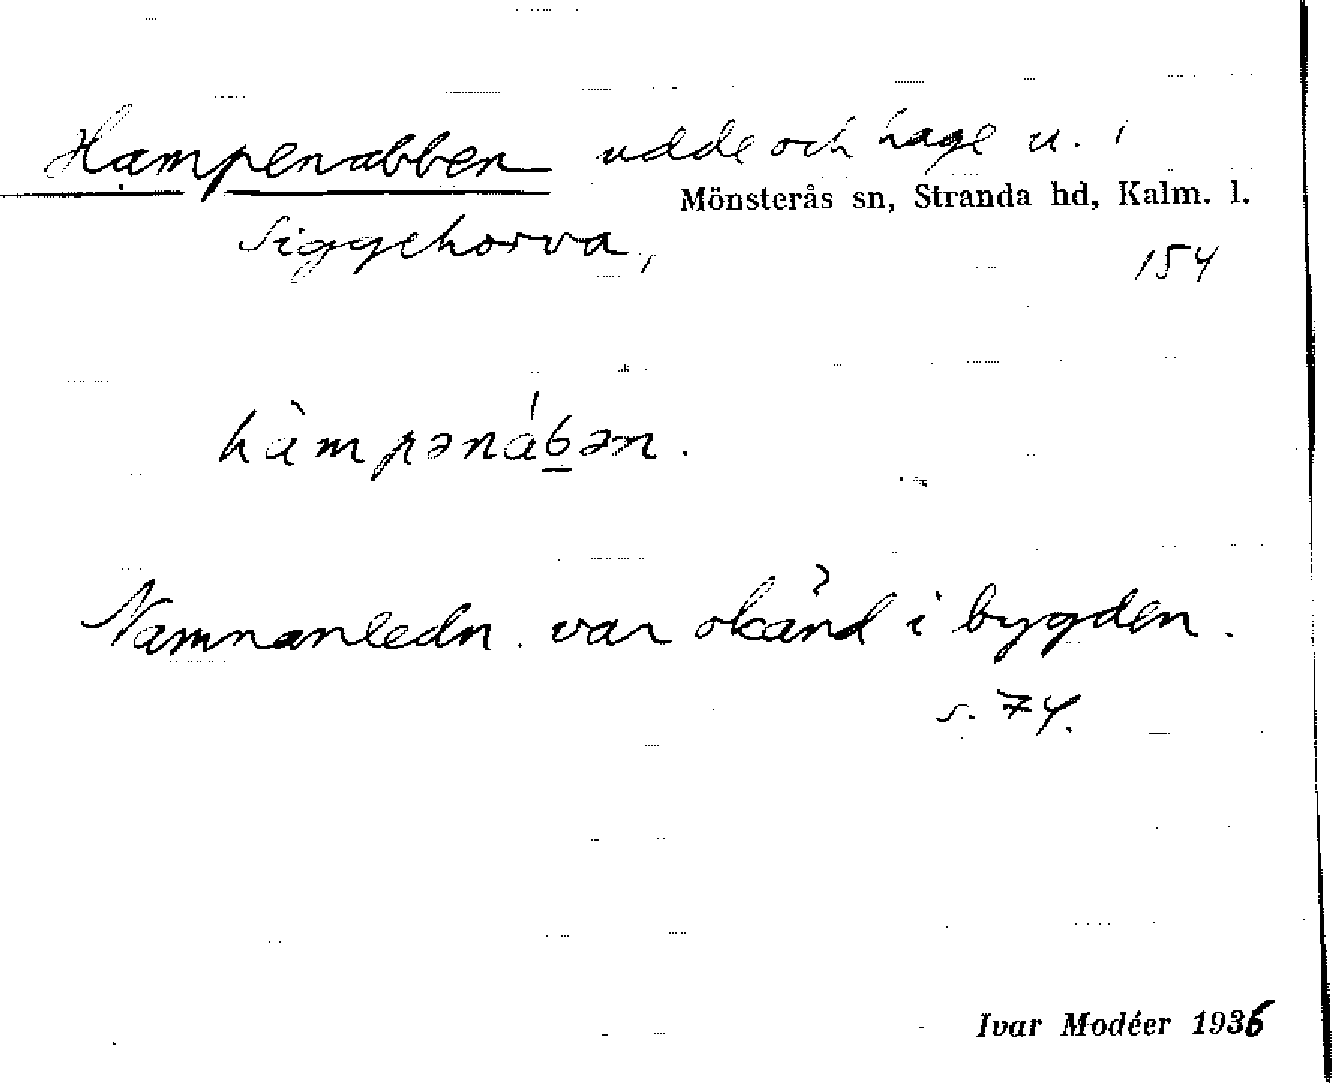 Hampenabben udde och hage u. i
Mönsterås sn, Stranda hd, Kalm. l.
Siggehorva,
154
hàmpənáb̲ən.
Namnanledn. var okänd i bygden.
s. 74.
Ivar Modéer 1936